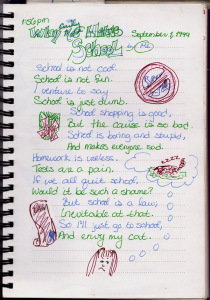 1:50pm
September 1, 1999
School
by
School is not cool.
School is not fun.
I venture to say
School is just dumb.
School shopping is good,
But the cause is bad.
School is boring and stupid,
And makes everyone sad.
Homework is useless.
Tests are a pain.
If we all quit school,
Would it be such a shame?
But school is a law,
Inevitable at that.
So I'll just go to school,
And envy my cat.